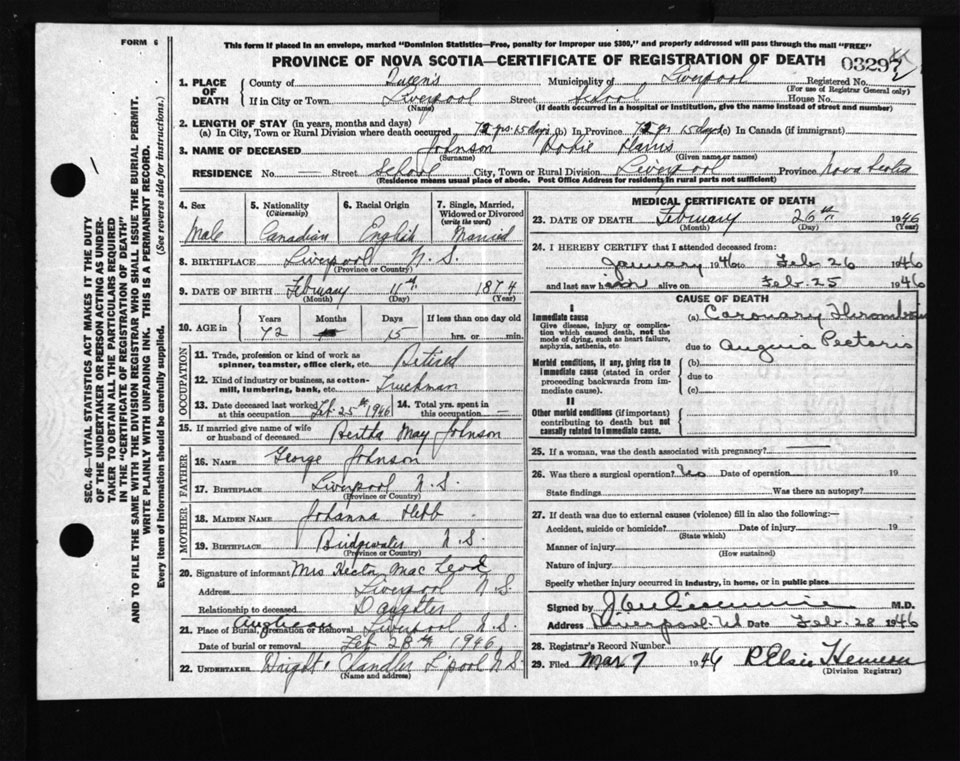 FORM 6
This form if placed in an envelope, marked "Dominion Statistics—Free, penalty for improper use $300," and properly addressed will pass through the mail "FREE"
PROVINCE OF NOVA SCOTIA—CERTIFICATE OF REGISTRATION OF DEATH
03297
1. PLACE OF DEATH
County of Queens Municipality of Liverpool Registered No.
(For use of Registrar General only)
If in City or Town Liverpool Street School House No.
(Name) (If death occurred in a hospital or institution, give the name instead of street and number)
2. LENGTH OF STAY (in years, months and days)
(a) In City, Town or Rural Division where death occurred 72 yrs. 15 days (b) In Province 72 yr 15 days (c) In Canada (if immigrant)
3. NAME OF DECEASED Johnson
(Surname) (Given name or names)
RESIDENCE No. — Street School City, Town or Rural Division Liverpool Province Nova Scotia
(Residence means usual place of abode. Post Office Address for residents in rural parts not sufficient)
4. Sex
Male
5. Nationality
(Citizenship)
Canadian
6. Racial Origin
English
7. Single, Married, Widowed or Divorced
(write the word)
Married
8. BIRTHPLACE Liverpool N. S.
(Province or Country)
9. DATE OF BIRTH February 11th 1874
(Month) (Day) (Year)
10. AGE in
Years Months Days If less than one day old
72 15 hrs. or min.
OCCUPATION
11. Trade, profession or kind of work as spinner, teamster, office clerk, etc. Retired
12. Kind of industry or business, as cotton-mill, lumbering, bank, etc. Truckman
13. Date deceased last worked at this occupation Feb. 25th 1946
14. Total yrs. spent in this occupation —
15. If married give name of wife or husband of deceased Bertha May Johnson
FATHER
16. NAME George Johnson
17. BIRTHPLACE Liverpool N. S.
(Province or Country)
MOTHER
18. MAIDEN NAME Johanna Hebb
19. BIRTHPLACE Bridgewater N. S.
(Province or Country)
20. Signature of informant Mrs Hector Mac Leod
Address Liverpool N. S.
Relationship to deceased Daughter
21. Place of Burial, Cremation or Removal Anglican Liverpool N. S.
Date of burial or removal Feb 28th 1946
22. UNDERTAKER Chandler L'pool N.S.
(Name and address)
MEDICAL CERTIFICATE OF DEATH
23. DATE OF DEATH February 26th 1946
(Month) (Day) (Year)
24. I HEREBY CERTIFY that I attended deceased from:
January 1946 to Feb 26 1946
and last saw him alive on Feb. 25 1946
CAUSE OF DEATH
Immediate cause
Give disease, injury or complication which caused death, not the mode of dying, such as heart failure, asphyxia, asthenia, etc.
(a) Coronary Thrombosis
due to Angina Pectoris
Morbid conditions, if any, giving rise to immediate cause (stated in order proceeding backwards from immediate cause).
(b)
due to
(c)
II
Other morbid conditions (if important) contributing to death but not causally related to immediate cause.
25. If a woman, was the death associated with pregnancy?
26. Was there a surgical operation? No Date of operation 19
State findings Was there an autopsy?
27. If death was due to external causes (violence) fill in also the following:—
Accident, suicide or homicide? Date of injury 19
(State which)
Manner of injury
(How sustained)
Nature of injury
Specify whether injury occurred in industry, in home, or in public place
Signed by M.D.
Address Liverpool Date Feb. 28 1946
28. Registrar's Record Number
29. Filed Mar 7 1946
(Division Registrar)
SEC. 46—VITAL STATISTICS ACT MAKES IT THE DUTY
OF THE UNDERTAKER OR PERSON ACTING AS UNDER-
TAKER TO OBTAIN ALL THE PARTICULARS REQUIRED
IN THE "CERTIFICATE OF REGISTRATION OF DEATH"
AND TO FILE THE SAME WITH THE DIVISION REGISTRAR WHO SHALL ISSUE THE BURIAL PERMIT.
WRITE PLAINLY WITH UNFADING INK. THIS IS A PERMANENT RECORD.
Every item of information should be carefully supplied. (See reverse side for instructions.)